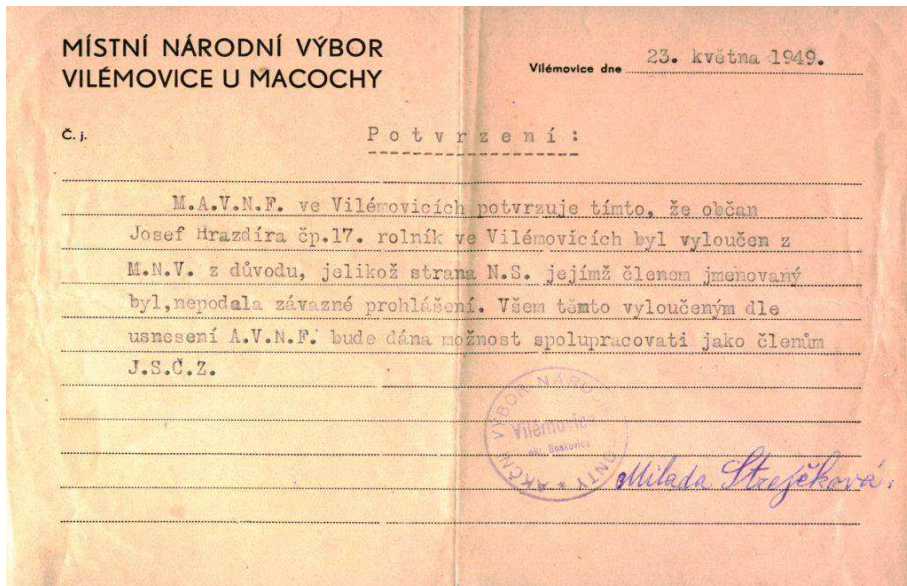 MÍSTNÍ NÁRODNÍ VÝBOR
VILÉMOVICE U MACOCHY
Vilémovice dne 23. května 1949.
Č. j.
Potvrzení:
M.A.V.N.F. ve Vilémovicích potvrzuje tímto, že občan
Josef Hrazdíra čp.17. rolník ve Vilémovících byl vyloučen z
M.N.V. z důvodu, jelikož strana N.S. jejímž členom jmenovaný
byl,nepodala závazné prohlášení. Všem těmto vyloučeným dle
usnesení A.V.N.F. bude dána možnost spolupracovati jako členům
J.S.Č.Z.
AKČNÍ VÝBOR NÁRODNÍ FRONTY
Vilémovice
okr. Boskovice
Milada Strejčková.